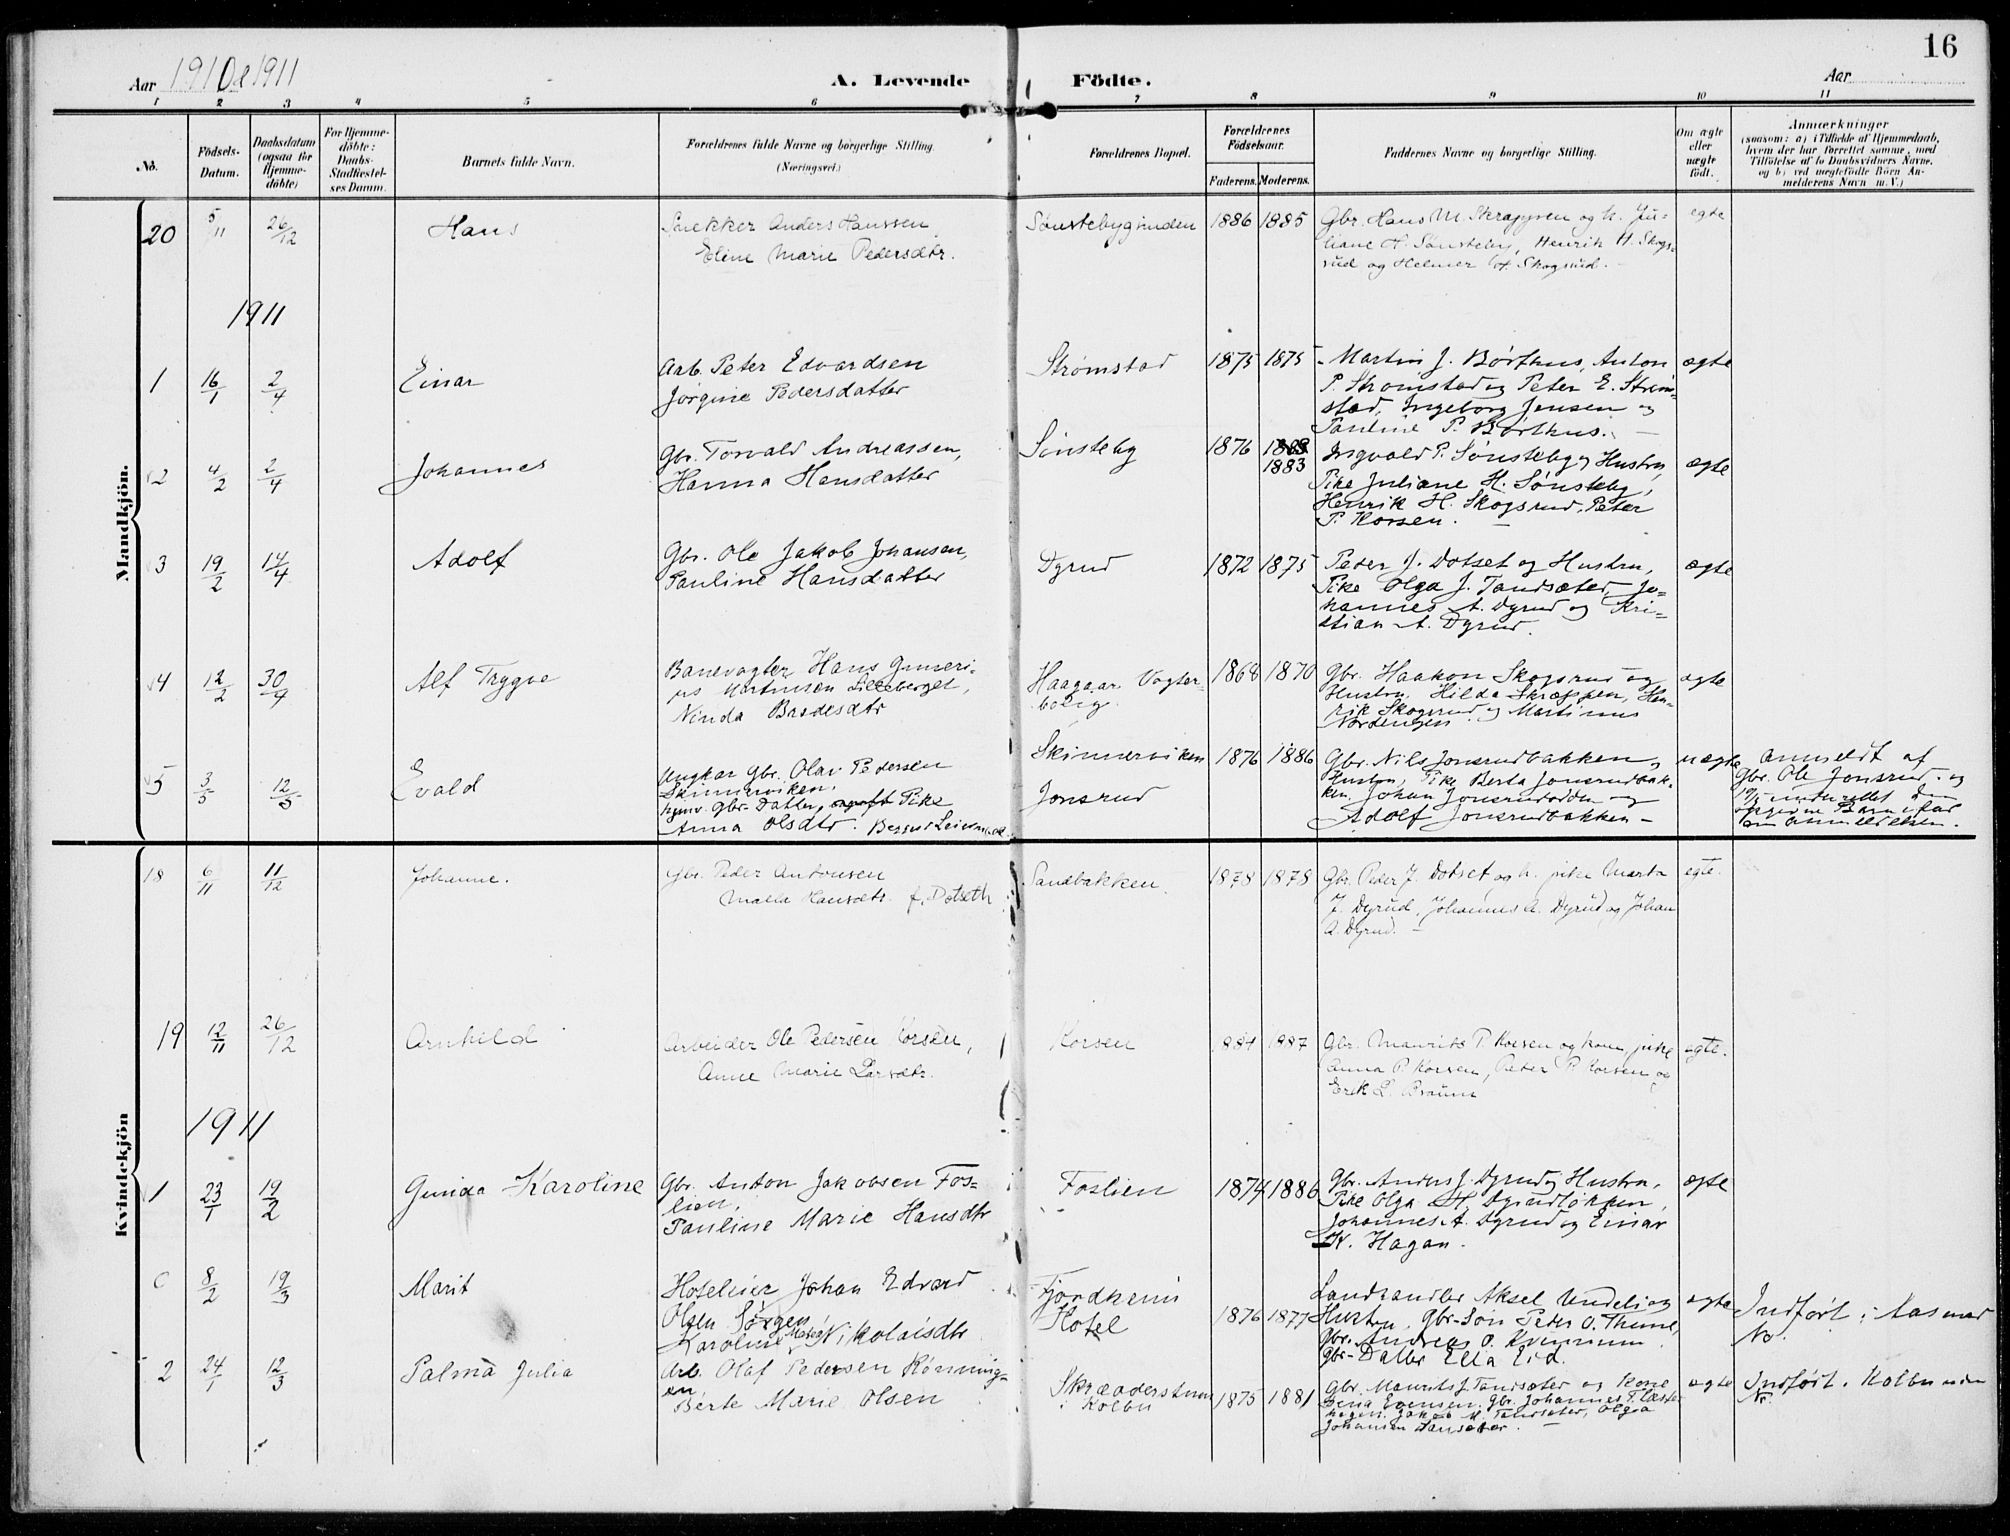 16
Aar 1910 & 1911 A. Levende Födte. Aar
1 2 3 4 5 6 7 8 9 10 11
No. Födsels-Datum. Daabsdatum (ogsaa for Hjemme-döbte) For Hjemme-döbte: Daabs-Stadfæstel-ses Datum. Barnets fulde Navn. Forældrenes fulde Navne og borgerlige Stilling. (Næringsvei.) Forældrenes Bopæl. Forældrenes Födselsaar. Faderens. Moderens. Faddernes Navne og borgerlige Stilling. Om ægte eller uægte födt. Anmærkninger (saasom: a) i Tilfælde af Hjemmedaab, hvem der har forrettet samme, med Tilföielse af to Daabsvidners Navne, og b) ved uægtefödte Börn An-melderens Navn m. V.)
Mandkjön.
20 5/11 26/12 Hans Snekker Anders Hanssen Sønstebygrinden 1886 1885 Gbr. Hans M. Skrapyren og h. Ju- egte
Eline Marie Pedersdtr. liane H. Sønsteby, Henrik H. Skogs-
rud og Helmer H. Skogsrud.
1911
1 16/1 2/4 Einar Arb. Peter Edvardsen Strømstad 1875 1875 Martin J. Børthus, Anton ægte
Jørgine Pedersdatter P. Strømstad og Peter E. Strøm-
stad, Ingeborg Jensen og
Pauline P. Børthus.
2 4/2 2/4 Johannes Gbr. Torvald Andreassen, Sønsteby 1876 1883 Ingvald P. Sønsteby og Hustru, ægte
Hanna Hansdatter Pike Juliane H. Sønsteby,
Henrik H. Skogsrud, Peter
P. Korsen.
3 19/2 14/4 Adolf Gbr. Ole Jakob Johansen, Dyrud 1872 1875 Peder J. Dotset og Hustru, ægte
Pauline Hansdatter Pike Olga J. Tandsæter, Jo-
hannes A. Dyrud og Kri-
stian A. Dyrud.
4 12/2 30/4 Alf Trygve Banevogter Hans Gunneri- Haagaar Vogter- 1868 1870 Gbr. Haakon Skogsrud og ægte
us Martinsen Lilleberget, bolig. Hustru, Hilda Skræppen, Hen-
Ninda Bardesdtr rik Skogsrud og Martinus
Nordengen
5 3/3 12/5 Evald Ungkar Gbr. Olav Pedersen Skinnerviken 1876 1886 Gbr. Nils Jonsrudbakken, uægte Anmeldt af
Skinnerviken. Hustru, Pike Berta Jonsrudbak- Gbr. Ole Jonsrud. og
Gbr. Datter, Pike Jonsrud ken, Johan Jonsrudodden og
Anna Olsdtr. Adolf Jonsrudbakken Anmeldelsen.
Kvindekjön
18 6/11 11/12 Johanne. Gbr. Peder Antonsen Sandbakken. 1878 1878 Gbr. Peder J. Dotset og h. pike Marta egte.
Hansdtr. f. Dotseth J. Dyrud, Johannes A. Dyrud og Johan
A. Dyrud.
19 12/11 26/12 Arnhild Arbeider Ole Pedersen Korsen, Korsen 1884 1887 Gbr. Maurits P. Korsen og kone, pike egte.
Anne Marie Larsdtr. Anna P. Korsen, Peter P. Korsen og
Erik L. Braun
1911
1 23/1 19/2 Gunda Karoline Gbr. Anton Jakobsen Fos- Foslien 1874 1886 Gbr. Anders J. Dyrud og Hustru, ægte
lien, Pike Olga H. Dyrudløkken,
Pauline Marie Hansdtr Johannes A. Dyrud og Einar
K. Hagan.
0 8/2 19/3 Marit Hoteleier Johan Edvard Fjordheim 1876 1877 Landhandler Aksel Undeli og ægte Indført i Aasmar
Olsen Sørgen, Hotel Hustru, Gbr-Søn Peter O. Thune, No.
Karoline Nikolaisdtr Gbr. Andreas O. Kvennum,
Gbr-Datter Ella Eid.
2 24/1 12/3 Palma Julia Arb. Olaf Pedersen Rønning- Skrædderstuen 1875 1881 Gbr. Maurits J. Tandsæter og Kone ægte Indført i Kolbu under
en, i Kolbu Evensen, Gbr. Johannes No.
Berte Marie Olsen Jakob M. Tandsæter, Olga
Johansen Tandsæter.